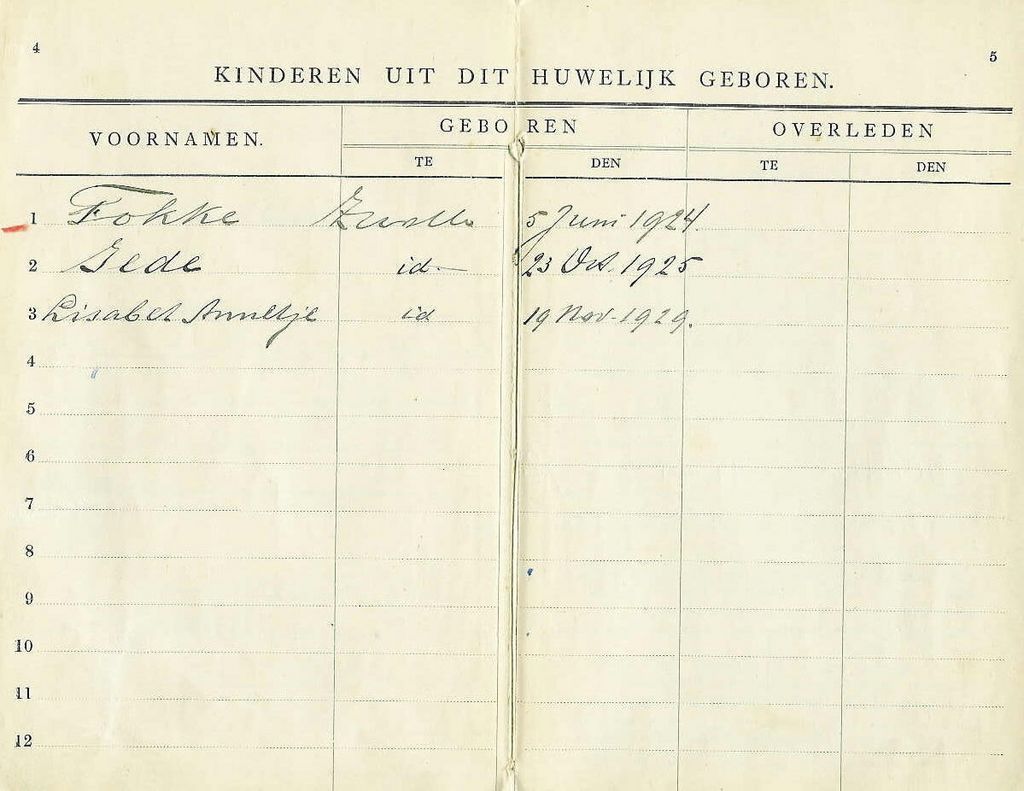 4
5
KINDEREN UIT DIT HUWELIJK GEBOREN.
VOORNAMEN. GEBOREN OVERLEDEN
TE DEN TE DEN
1 Fokke Zwolle 5 Juni 1924.
2 Jede id. 23 Oct. 1925
3 Lisabet Annetje id 19 Nov. 1929.
4
5
6
7
8
9
10
11
12